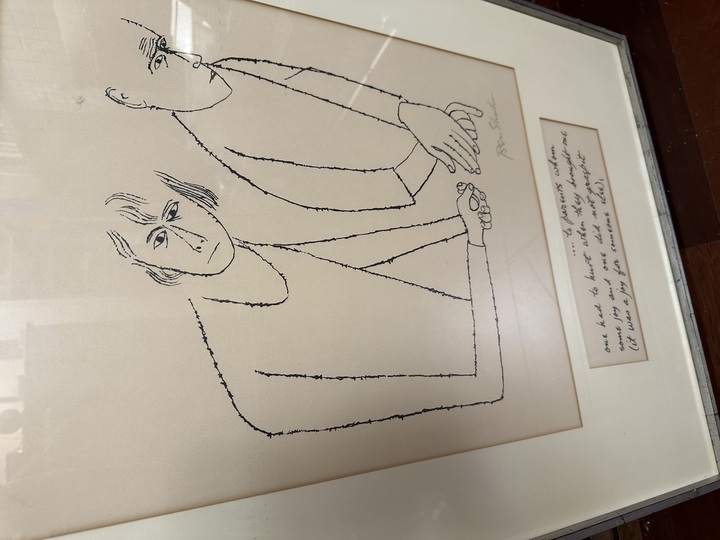 Ben Shahn
.... to parents whom
one had to hurt when they brought one
some joy and one did not grasp it
(it was a joy for someone else);